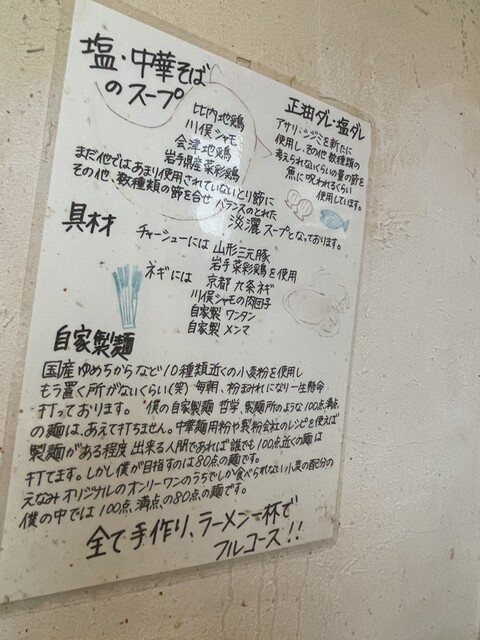 塩・中華そば
のスープ
比内地鶏
川俣シャモ
会津地鶏
岩手県産菜彩鶏
まだ他ではあまり使用されていないとり節に
その他、数種類の節を合せ バランスのとれた
淡麗スープとなっております。
正油ダレ・塩ダレ
アサリ・シジミを新たに
使用し、その他数種類の
考えられないくらいの量の節を
魚に呪われるくらい
使用しています。
具材
チャーシューには 山形三元豚
岩手菜彩鶏を使用
ネギには 京都 九条ネギ
川俣シャモの肉団子
自家製 ワンタン
自家製 メンマ
自家製麺
国産ゆめちからなど10種類近くの小麦粉を使用し
もう置く所がないくらい(笑) 毎朝、粉まみれになり一生懸命
打っております。 "僕の自家製麺 哲学、製麺所のような100点満点
の麺は、あえて打ちません。中華麺用粉や製粉会社のレシピを使えば
製麺がある程度 出来る人間であれば誰でも100点近くの麺は
打てます。しかし僕が目指すのは80点の麺です。
えなみオリジナルのオンリーワンのうちでしか食べられない小麦の配分の
僕の中では100点満点の80点の麺です。
全て手作り、ラーメン一杯で
フルコース!!